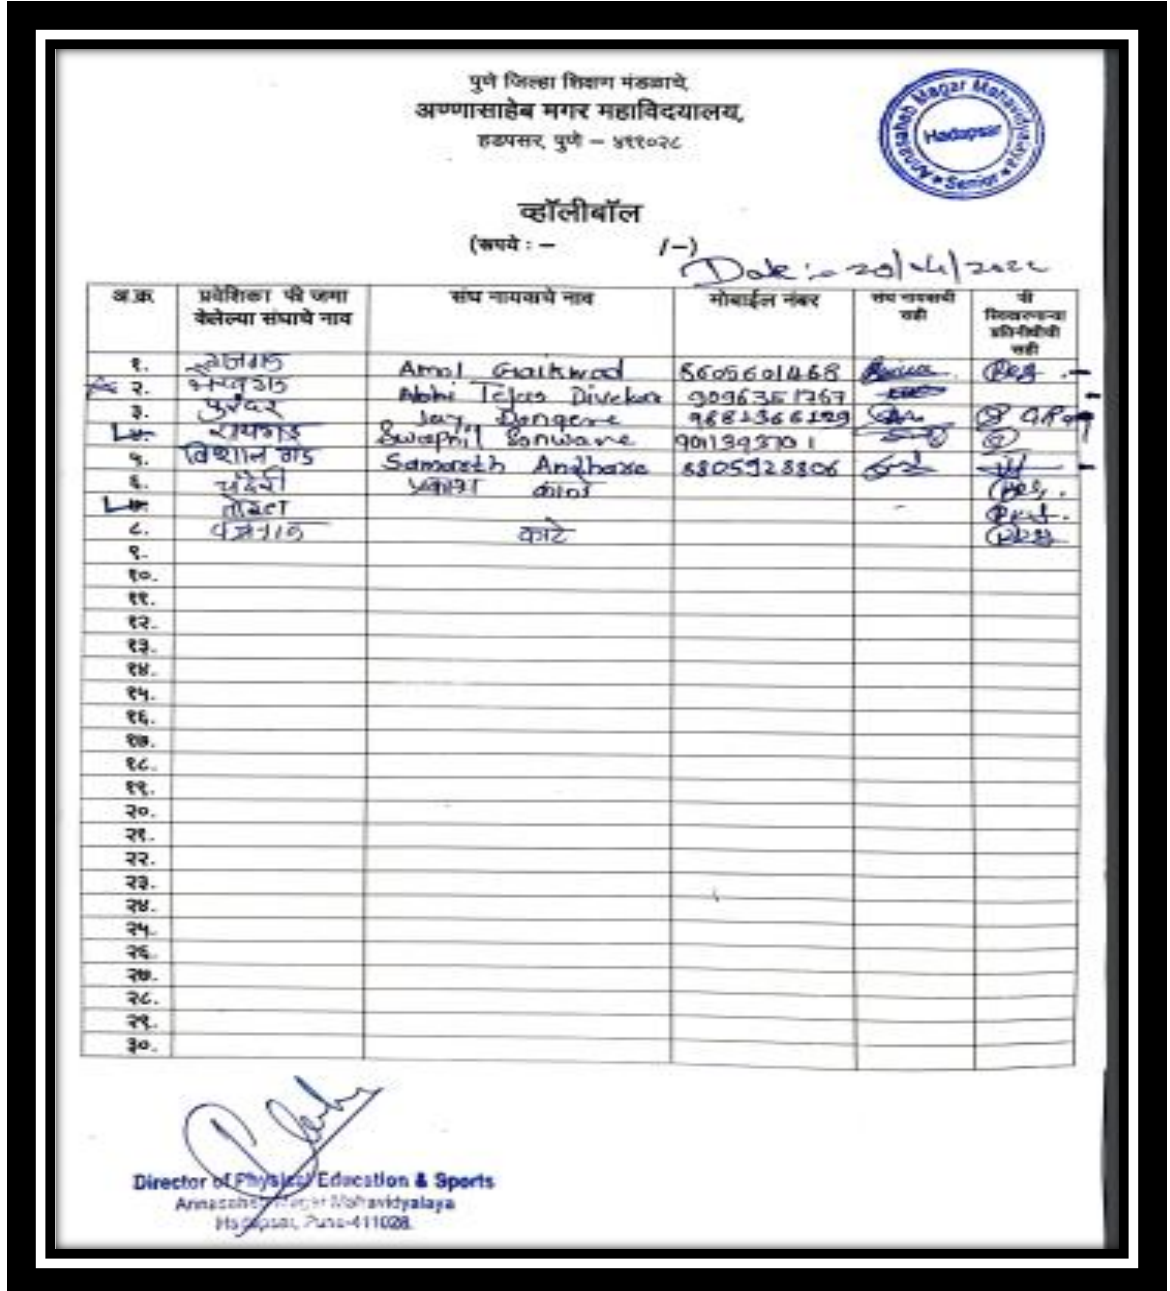 पुणे जिल्हा शिक्षण मंडळाचे,
अण्णासाहेब मगर महाविदयालय,
हडपसर, पुणे – ४११०२८
Annasaheb Magar Mahavidyalaya
Hadapsar
Senior
व्हॉलीबॉल
(रूपये : – /–)
Date :-
अ.क्र. प्रवेशिका फी जमा केलेल्या संघाचे नाव संघ नायकाचे नाव मोबाईल नंबर संघ नायकाची सही फी स्विकारणाऱ्या प्रतिनीधीची सही
१. राजगड Amol Gaikwad 8605601468
२. Abhi Tejas Divekar
३. पुरंदर Jay Dongere
४. रायगड Swapnil Sonwane
५. विशाल गड Samarth Andhare 8805928806
६. चंदेरी प्रकाश
७. तोरणा
८. काटे
९.
१०.
११.
१२.
१३.
१४.
१५.
१६.
१७.
१८.
१९.
२०.
२१.
२२.
२३.
२४.
२५.
२६.
२७.
२८.
२९.
३०.
Director of Physical Education & Sports
Annasaheb Magar Mahavidyalaya
Hadapsar, Pune-411028.